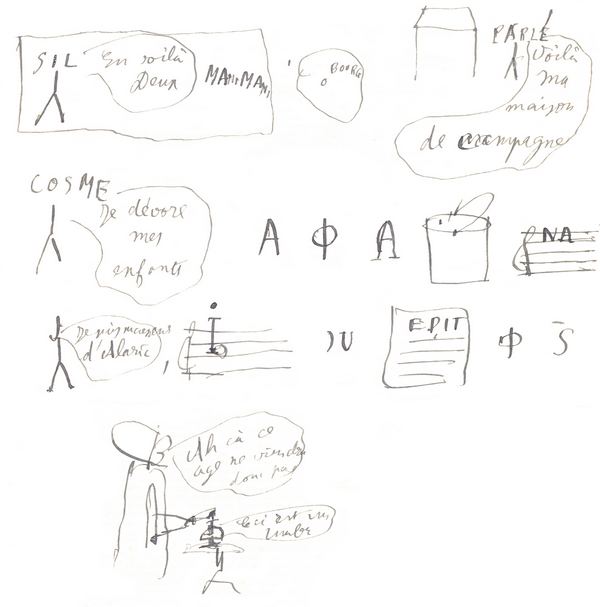 SIL
En voilà
Deux
MANIMANI
BOURG
PARLE
Voilà
ma
maison
de campagne
COSME
Je dévore
mes
enfants
A Φ A
NA
d'Alaric
EPIT
Φ S
Ah çà ce
age ne viendra
donc pas
Ceci est un